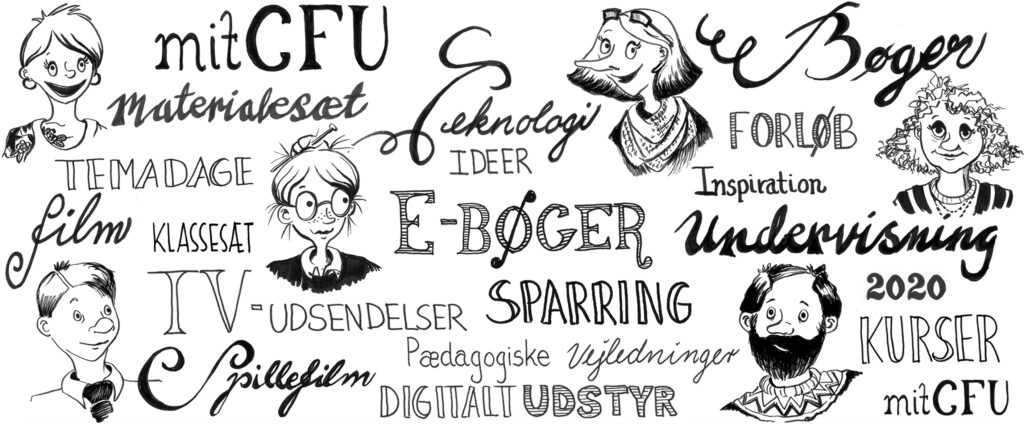 mitCFU
Materialesæt
Teknologi
IDEER
Bøger
FORLØB
TEMADAGE
Inspiration
film
KLASSESÆT
E-BØGER
Undervisning
TV-UDSENDELSER
SPARRING
2020
Pædagogiske Vejledninger
KURSER
Spillefilm
DIGITALT UDSTYR
mitCFU